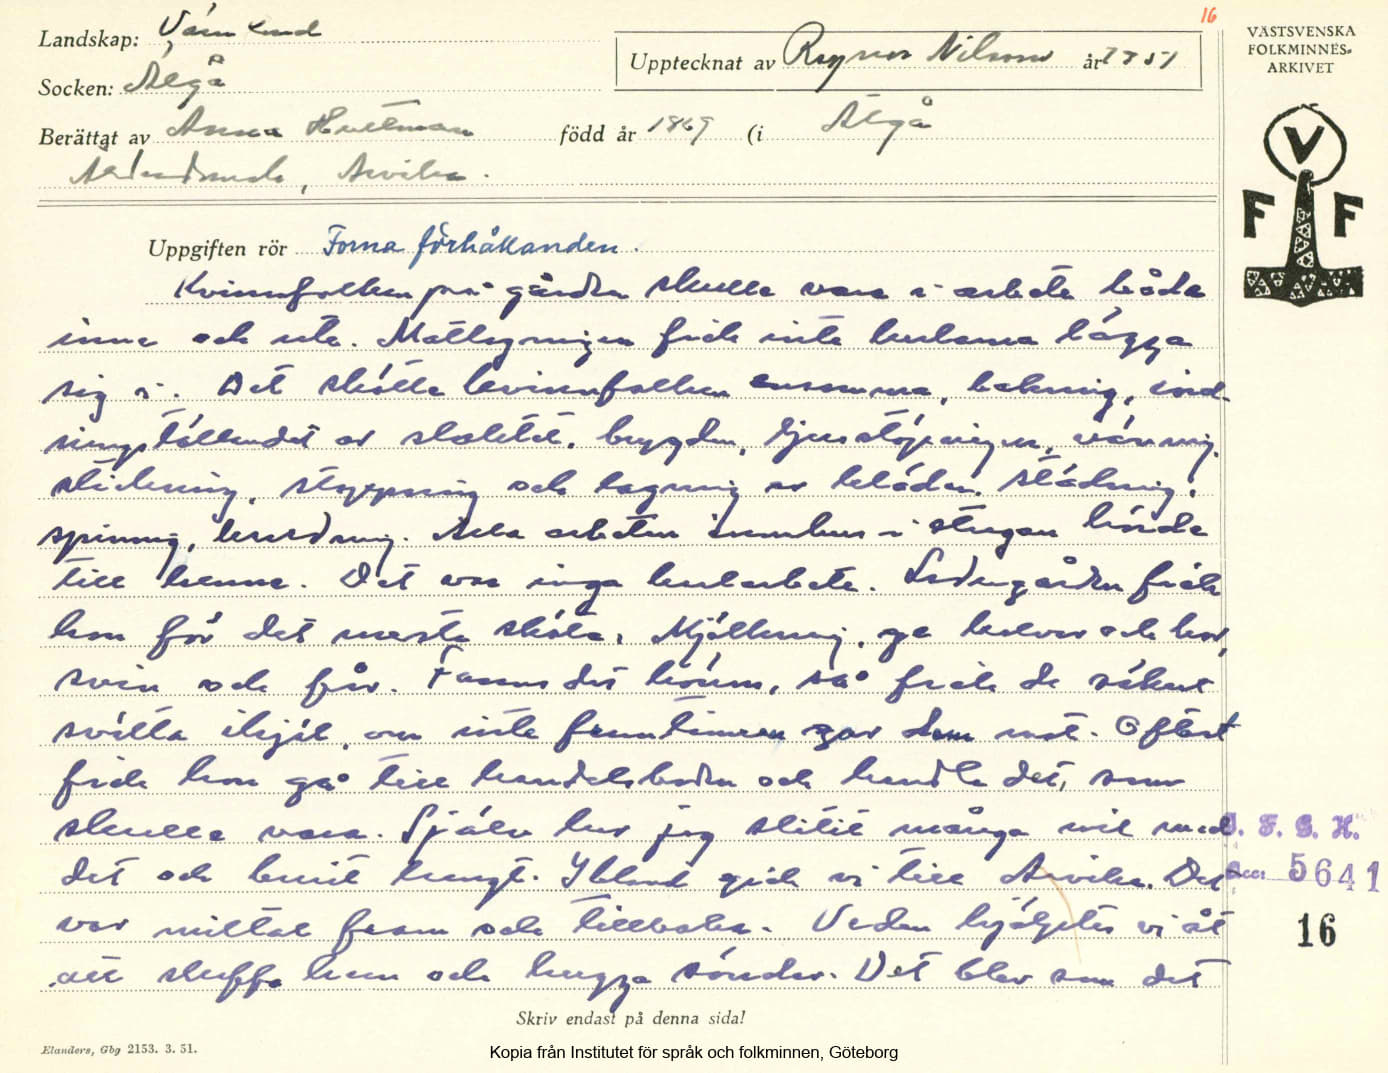 16
Landskap: Värmland
Socken: Älgå
Upptecknat av Ragnar Nilsson år 1951
Berättat av Anna Hultman född år 1869 (i Älgå
, Arvika.
VÄSTSVENSKA
FOLKMINNES-
ARKIVET
V
F F
Uppgiften rör Forna förhållanden.
Kvinnfolken på gården skulle vara i arbete både
inne och ute. Matlagningen fick inte karlarna lägga
sig i. Det skötte kvinnfolken ensamma, bakning, iord-
ningställandet av slaktet, brygden, ljusstöpningen, vävning,
stickning, stoppning och lagning av kläder, städning,
spinning, kardning. Alla arbeten inomhus i stugan hörde
till henne. Det var inga karlarbete. Ladugården fick
hon för det mesta sköta. Mjölkning, ge kalvar och kor,
svin och får. Fanns det höns, så fick de säkert
svälta ihjäl, om inte fruntimren gav dem mat. Oftast
fick hon gå till handelsboden och handla det, som
skulle vara. Själv har jag slitit många mil med
det och burit tungt. Ibland gick vi till Arvika. Det
var miltal fram och tillbaka. Veden hjälptes vi åt
att skaffa hem och hugga sönder. Det blev som det
I. F. G. H.
Acc: 5641
16
Skriv endast på denna sida!
Elanders, Gbg 2153. 3. 51.
Kopia från Institutet för språk och folkminnen, Göteborg